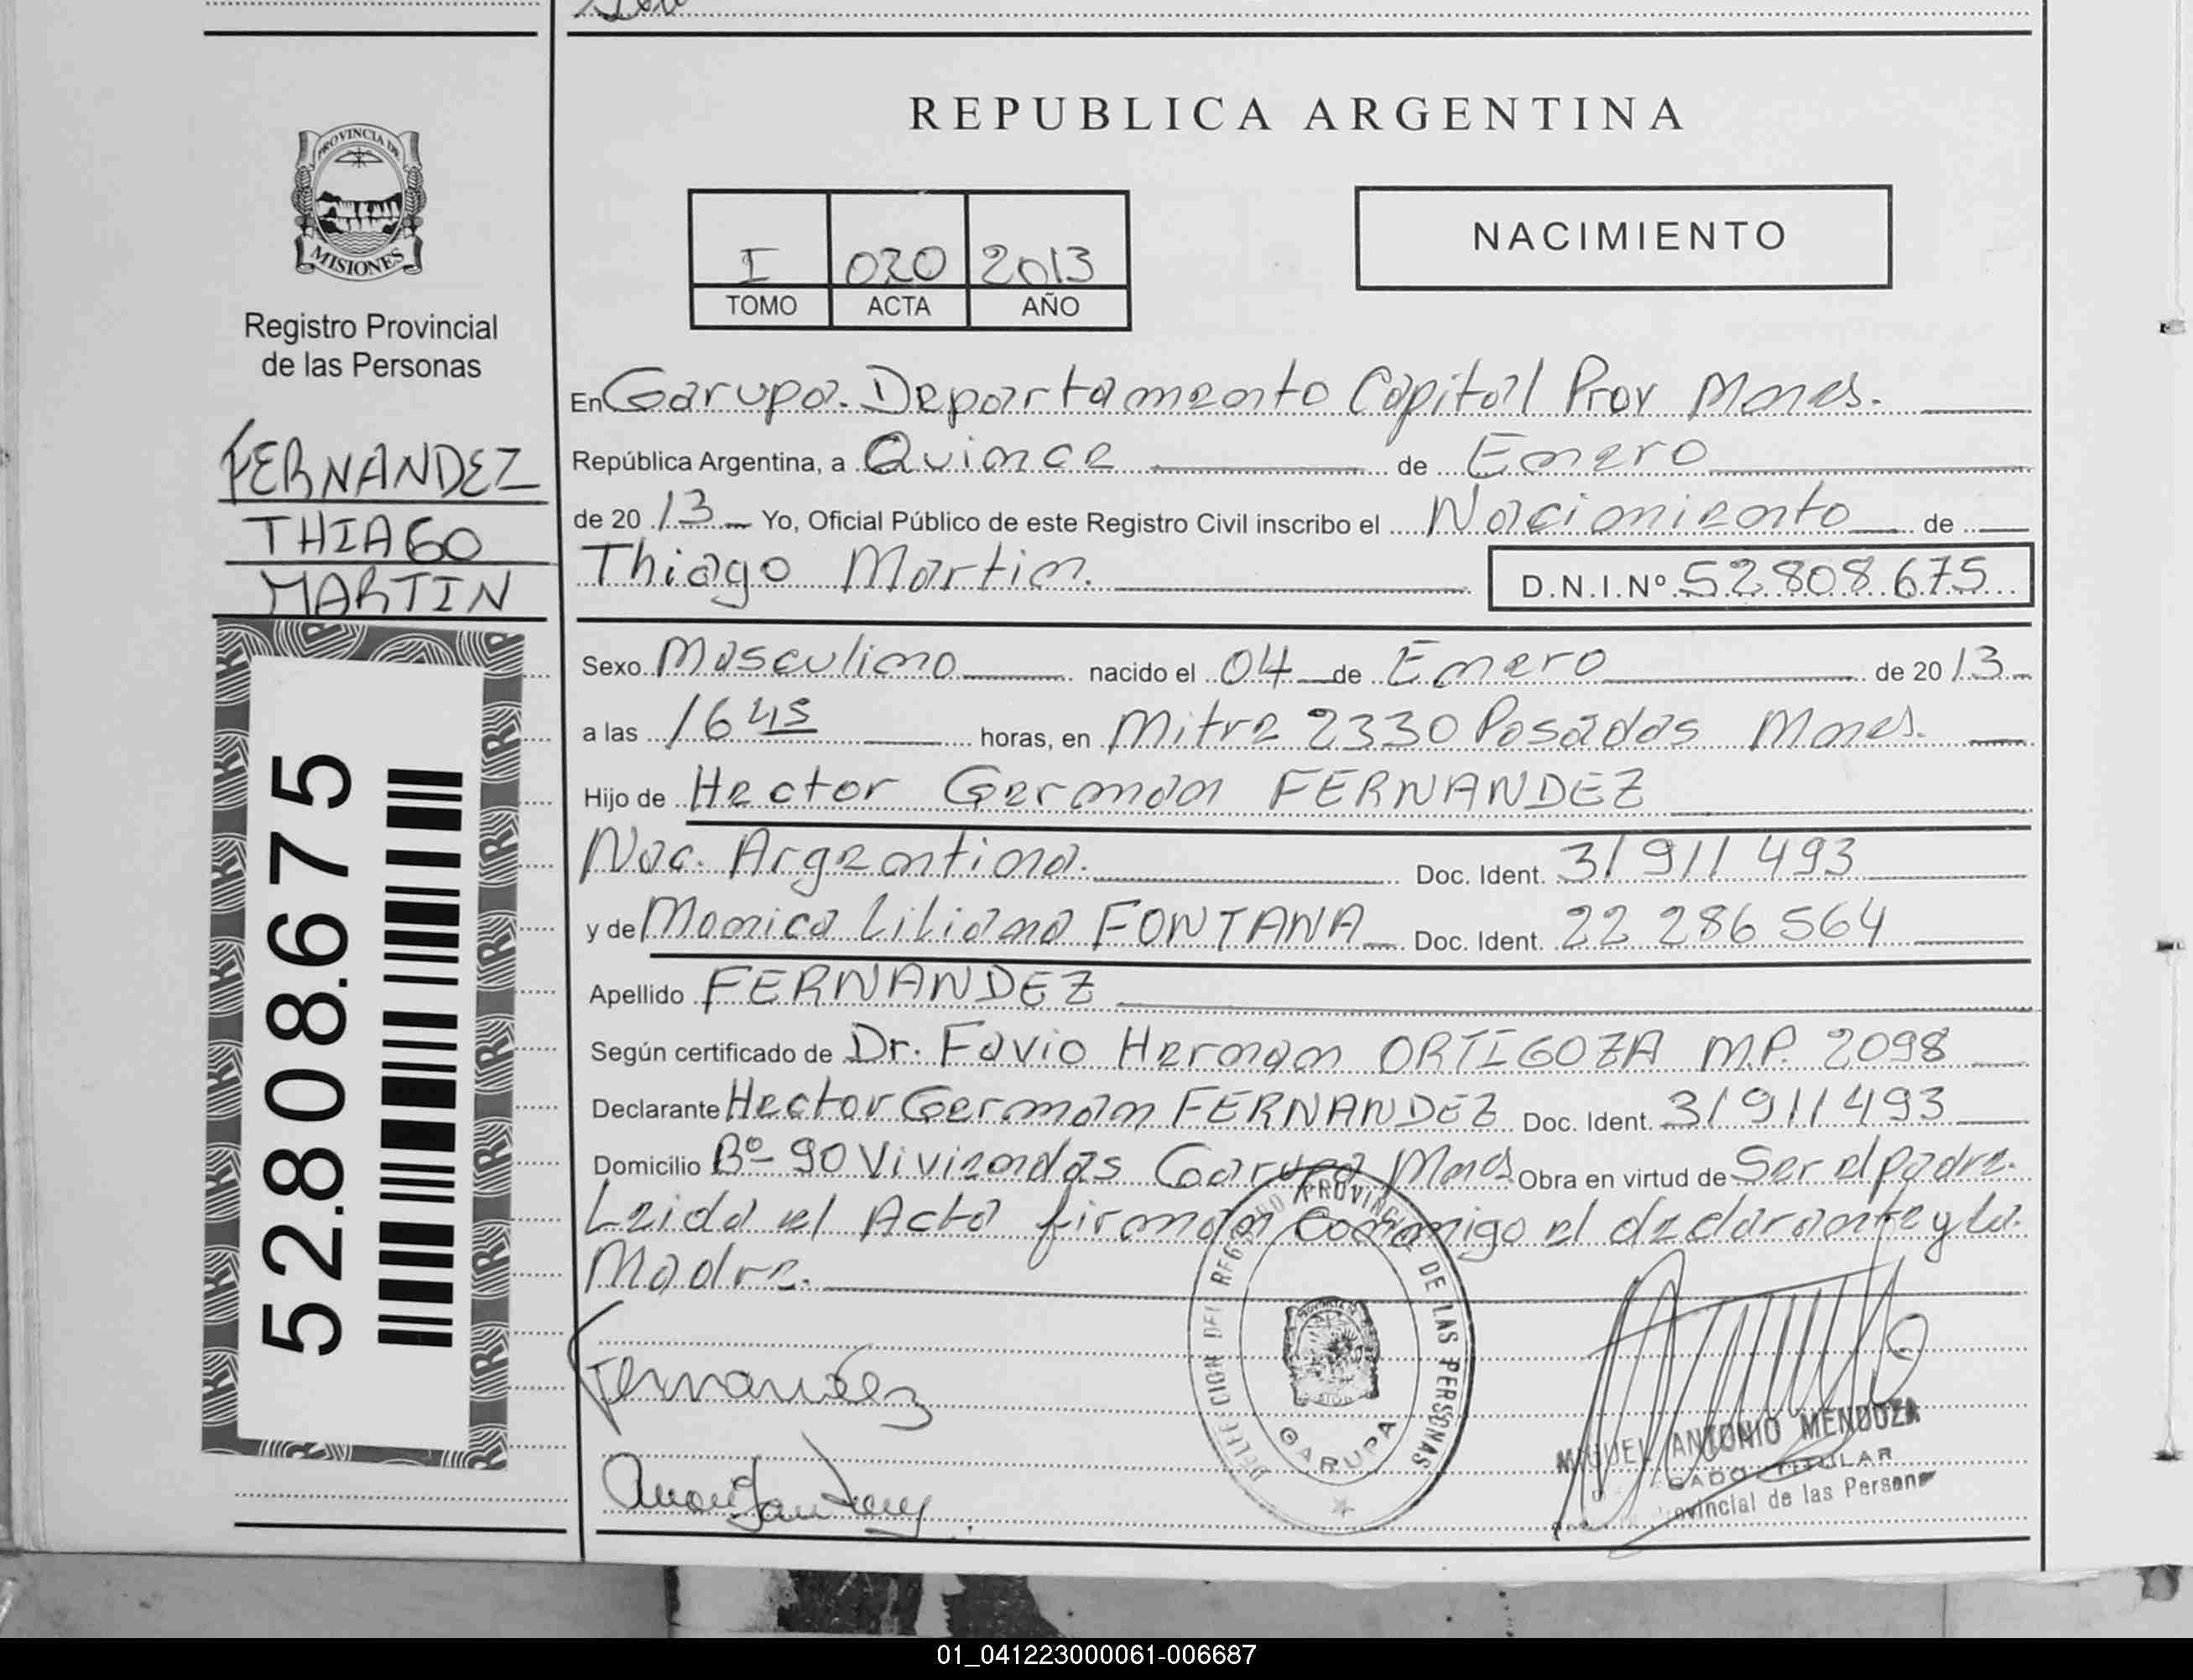 REPUBLICA ARGENTINA
PROVINCIA DE
MISIONES
Registro Provincial
de las Personas
FERNANDEZ
THIAGO
MARTIN
52.808.675
I 020 2013
TOMO ACTA AÑO
NACIMIENTO
En Garupa. Departamento Capital Prov Mnes.
República Argentina, a Quince de Enero
de 20 13 Yo, Oficial Público de este Registro Civil inscribo el Nacimiento de
Thiago Martin.
D.N.I.Nº 52.808.675
Sexo Masculino nacido el 04 de Enero de 20 13
a las 16 45 horas, en Mitre 2330 Posadas Mnes.
Hijo de Hector German FERNANDEZ
Nac. Argentina. Doc. Ident. 31 911 493
y de Monica Liliana FONTANA Doc. Ident. 22 286 564
Apellido FERNANDEZ
Según certificado de Dr. Favio Hernan ORTIGOZA M.P. 2098
Declarante Hector German FERNANDEZ Doc. Ident. 31 911 493
Domicilio Bº 90 Viviendas Garupa Mnes Obra en virtud de Ser el padre.
Leida el Acta firman Conmigo el declarante y la.
Madre.
Fernandez
DEL REGISTRO PROVINCIAL DE LAS PERSONAS
GARUPA
MIGUEL ANTONIO MENDOZA
TITULAR
Provincial de las Personas
01_041223000061-006687